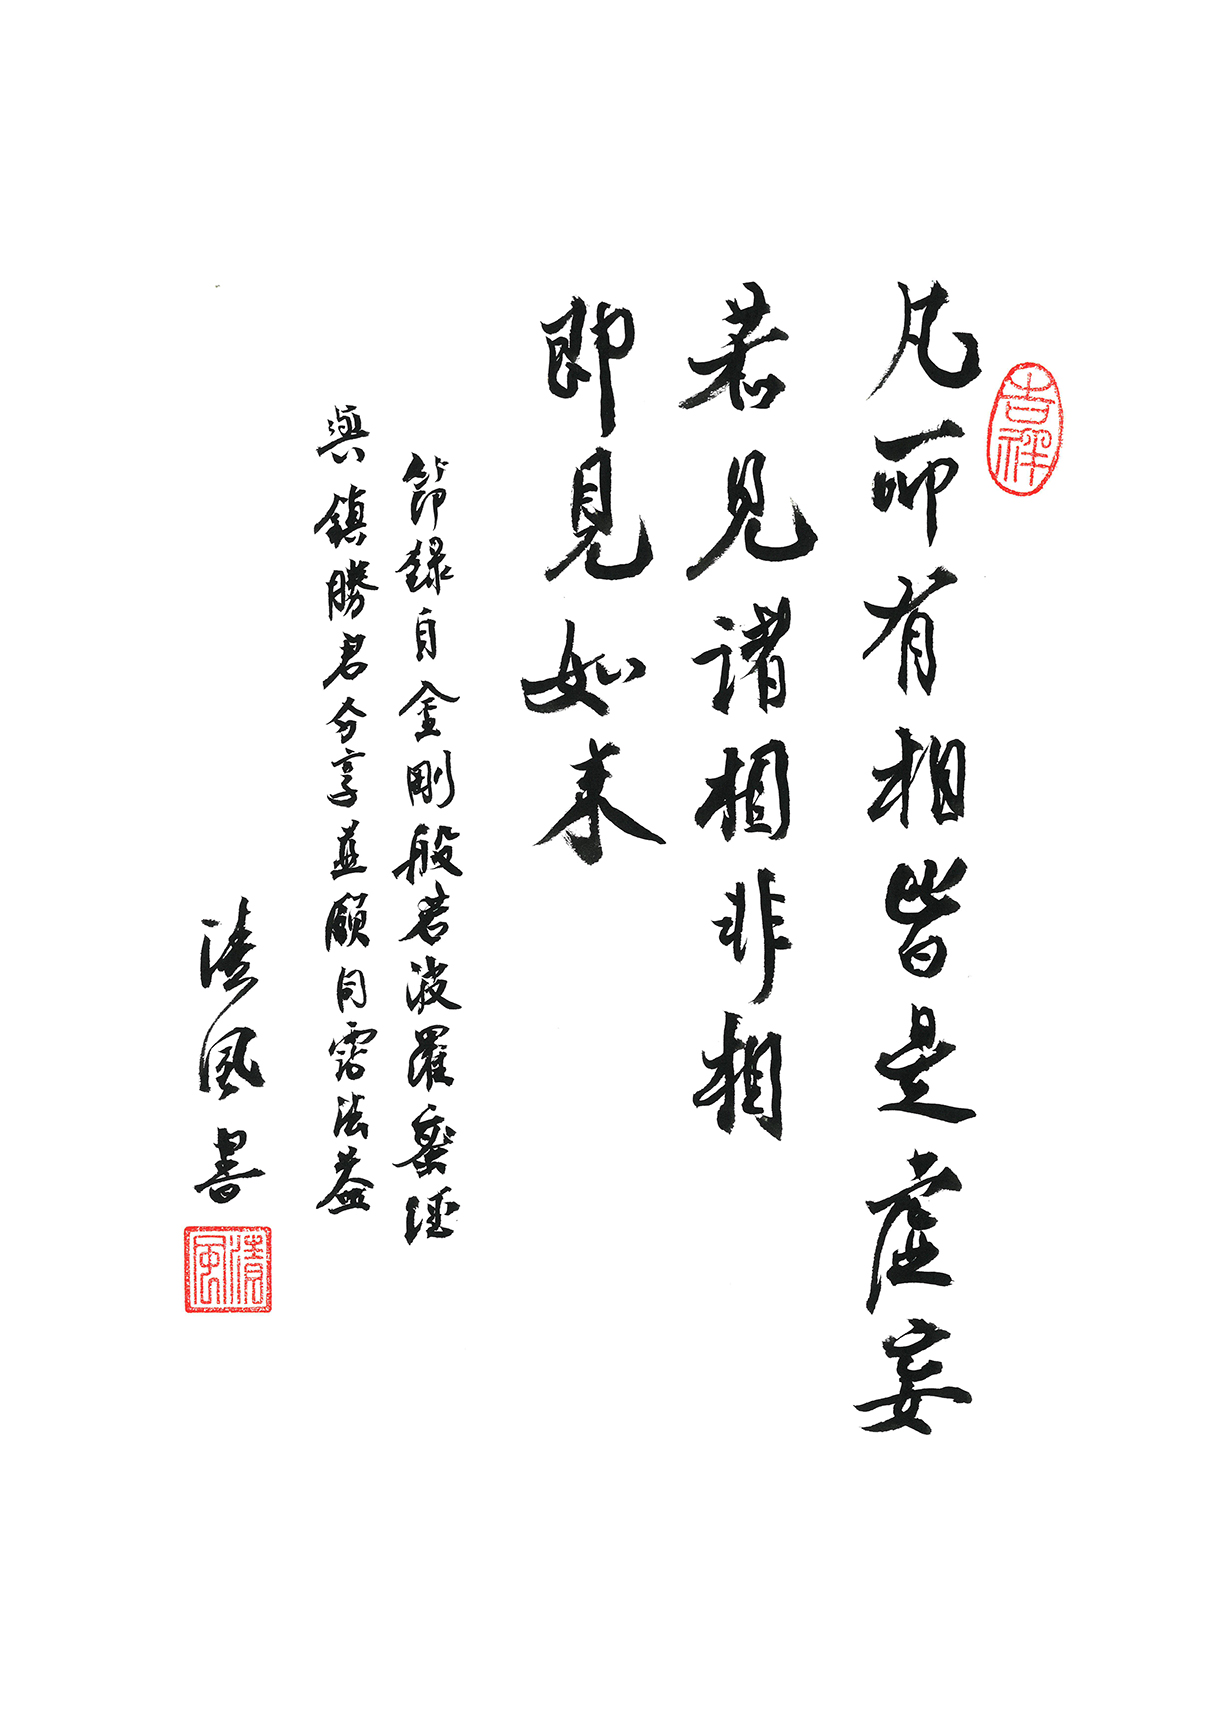 吉祥
凡所有相皆是虛妄
若見諸相非相
即見如来
節録自金剛般若波羅蜜経
與鎮勝君分享並願同霑法益
清風書
清風